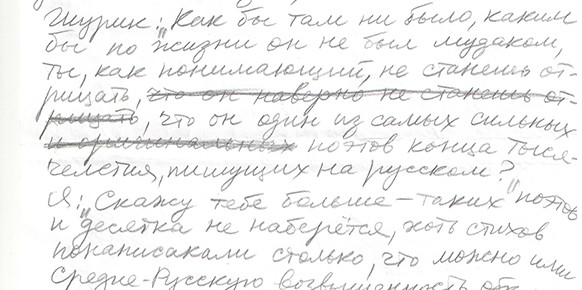 Шурик: „Как бы там ни было, каким
бы по жизни он не был мудаком,
ты, как понимающий, не станешь от-
рицать, что он наверно не станешь от-
рицать, что он один из самых сильных
и оригинальных поэтов конца тыся-
челетия, пишущих на русском?"
Я: „Скажу тебе больше – таких поэтов
и десятка не наберётся, хоть стихов
понаписакали столько, что можно ими
Средне-Русскую возвышенность